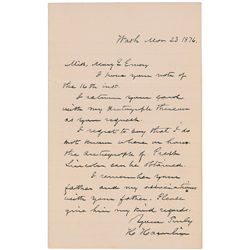 Wash Nov 23 1876.
Miss Mary E Emory
I have your note of
the 16th inst.
I return your card
with my autograph thereon
as you request.
I regret to say that I do
not know where or how
the autograph of Presdt
Lincoln can be obtained.
I remember your
father and my associations
with your father. Please
give him my kind regards.
Yours Truly
H Hamlin